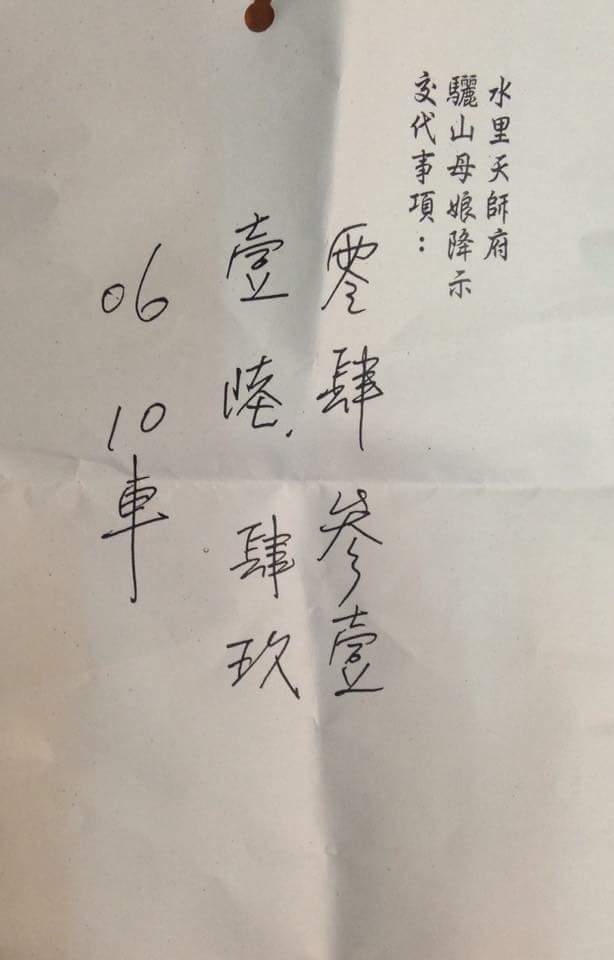 水里天師府
驪山母娘降示
交代事項：
零肆 參壹
壹陸. 肆玖
06 10車